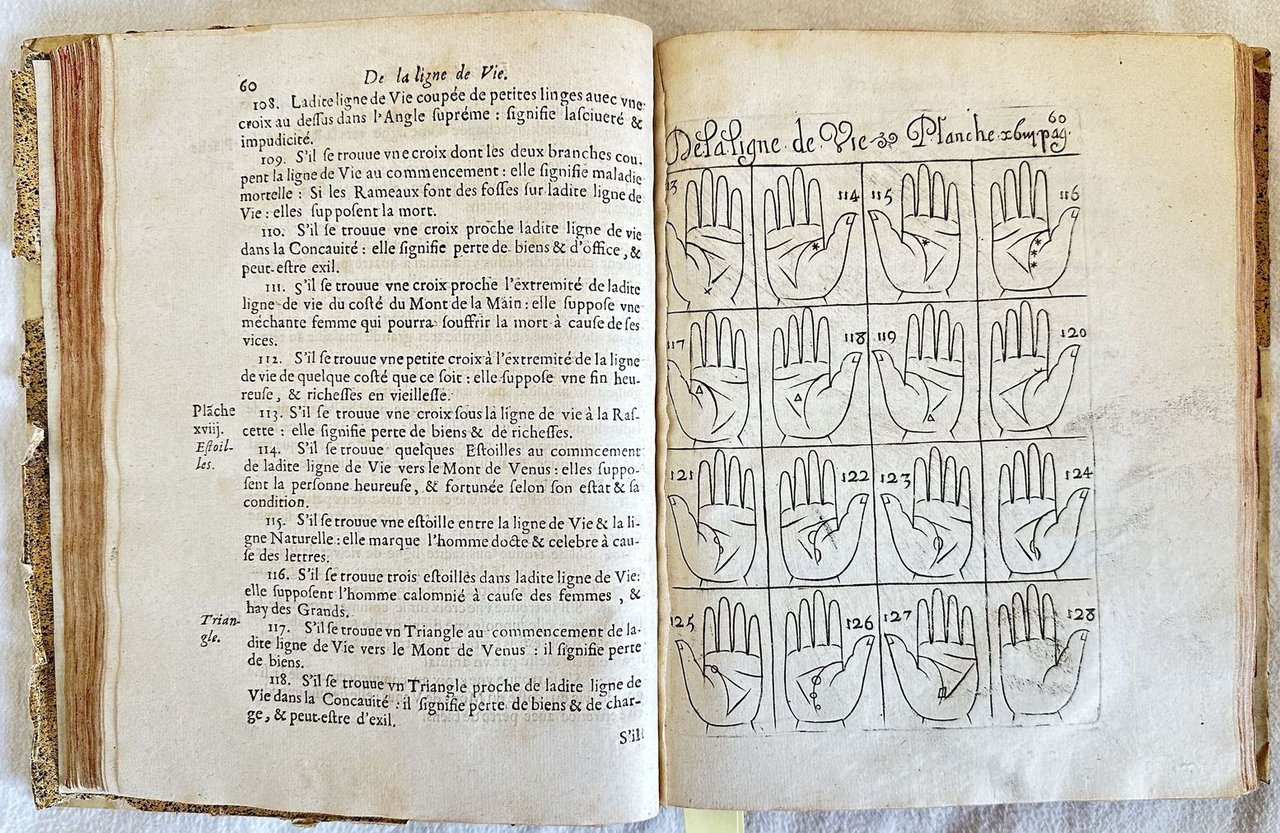 60
De la ligne de Vie.
108. Ladite ligne de Vie coupée de petites linges auec vne
croix au deſſus dans l'Angle ſupréme : ſignifie laſciueté &
impudicité.
109. S'il ſe trouue vne croix dont les deux branches cou
pent la ligne de Vie au commencement : elle ſignifie maladie
mortelle : Si les Rameaux font des foſſes ſur ladite ligne de
Vie : elles ſuppoſent la mort.
110. S'il ſe trouue vne croix proche ladite ligne de vie
dans la Concauité : elle ſignifie perte de biens & d'office, &
peut-eſtre exil.
111. S'il ſe trouue vne croix proche l'éxtremité de ladite
ligne de vie du coſté du Mont de la Main : elle ſuppoſe vne
méchante femme qui pourra ſouffrir la mort à cauſe de ſes
vices.
112. S'il ſe trouue vne petite croix à l'éxtremité de la ligne
de vie de quelque coſté que ce ſoit : elle ſuppoſe vne fin heu-
reuſe, & richeſſes en vieilleſſe.
Plāche
xviij.
113. S'il ſe trouue vne croix ſous la ligne de vie à la Raſ-
cette : elle ſignifie perte de biens & de richeſſes.
Eſtoil-
les.
114. S'il ſe trouue quelques Eſtoilles au commencement
de ladite ligne de Vie vers le Mont de Venus : elles ſuppo-
ſent la perſonne heureuſe, & fortunée ſelon ſon eſtat & ſa
condition.
115. S'il ſe trouue vne eſtoille entre la ligne de Vie & la li-
gne Naturelle : elle marque l'homme docte & celebre à cau-
ſe des lettres.
116. S'il ſe trouue trois eſtoilles dans ladite ligne de Vie:
elle ſuppoſent l'homme calomnié à cauſe des femmes, &
hay des Grands.
Trian-
gle.
117. S'il ſe trouue vn Triangle au commencement de la-
dite ligne de Vie vers le Mont de Venus : il ſignifie perte
de biens.
118. S'il ſe trouue vn Triangle proche de ladite ligne de
Vie dans la Concauité : il ſignifie perte de biens & de char-
ge, & peut-eſtre d'exil.
S'il
De la ligne de Vie Planche pag. 60
114 115 116
118 119 120
121 122 123 124
125 126 127 128